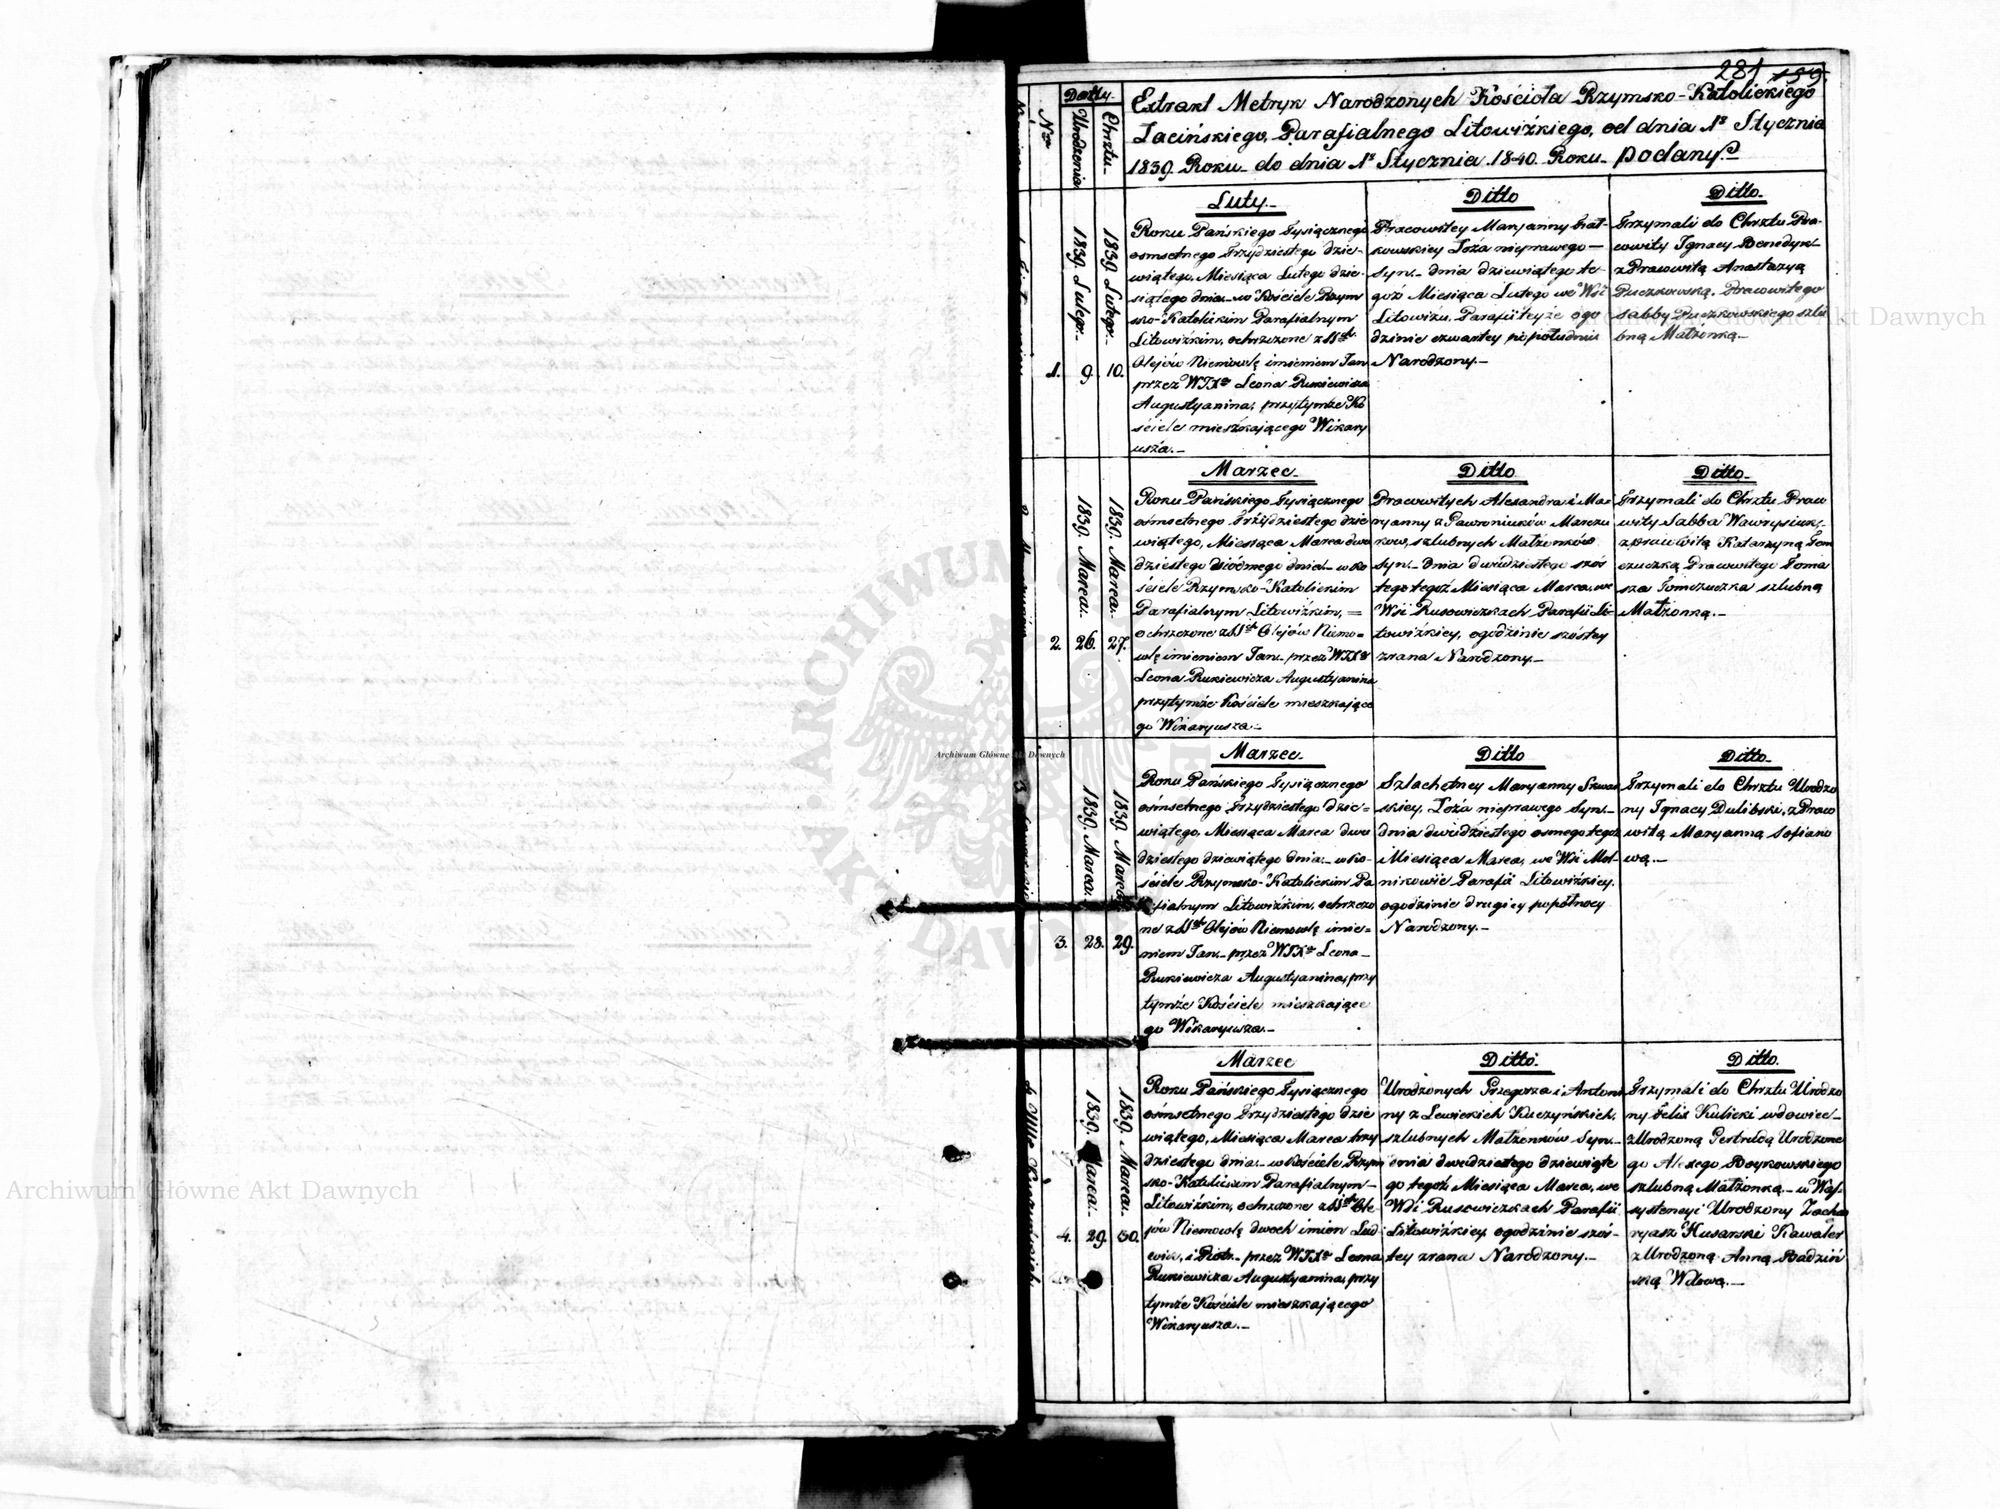 281 199.
Daty.
Nro
Urodzenia
Chrztu
Extrakt Metryk Narodzonych Kościoła Rzymsko-Katolickiego
Łacińskiego, Parafialnego Litowizkiego, od dnia 1º Stycznia
1839. Roku- do dnia 1º Stycznia 1840. Roku- podany.
1.
1839. Lutego.
9
1839. Lutego.
10.
Luty.-
Roku Pańskiego Tysiącznego
osmsetnego Trzydziestego dzie-
wiątego, Miesiąca Lutego dzie-
siątego dnia.- w Kościele Rzym
sko-Katolickim Parafialnym
Litowizkim, ochrzczone z SSch
Olejów Niemowlę imieniem Jan
przez WJXa Leona Rukiewicza
Augustyanina, przytymże Ko
ściele mieszkającego Wikary
usza.-
Ditto
Pracowitey Maryanny
kowskiey Łoża nieprawego-
Syn.- dnia dziewiątego te-
goż Miesiąca Lutego we Wsi
Litowizu, Parafii teyże ogo
dzinie czwartey popołudniu
Narodzony.-
Ditto.-
Trzymali do Chrztu Pra-
cowity Ignacy Benedyk-
z Pracowitą Anastazyą
Puczkowską, Pracowitego
Sabby Puczkowskiego szlu
bną Małżonką.-
2.
1839. Marca.
26.
1839. Marca.
27.
Marzec.-
Roku Pańskiego Tysiącznego
ośmsetnego Trzydziestego dzie
wiątego, Miesiąca Marca dwu
dziestego siódmego dnia.- w Ko
ściele Rzymsko-Katolickim
Parafialnym Litowizkim, =
ochrzczone z SSch Olejów Niemo=
wlę imieniem Jan.- przez WJXa
Leona Rukiewicza Augustyanina
przytymże Kościele mieszkające
go Wikaryusza.-
Ditto
Pracowitych Alexandra i Ma-
ryanny z Pawroniuków Marczu
kow, szlubnych Małżonków
Syn.- Dnia dwudziestego szós
tego tegoż Miesiąca Marca, we
Wsi Rusowiczkach Parafii Li-
towizkiey, ogodzinie szóstey
zrana Narodzony.-
Ditto.-
Trzymali do Chrztu Praco
wity Sabba Wawrysiuk,
z pracowitą Katarzyną Tom
czuczką Pracowitego Toma
sza Tomczuczka szlubną
Małżonką.-
3.
1839. Marca.
28.
1839. Marca
29.
Marzec.
Roku Pańskiego Tysiącznego
ośmsetnego Trzydziestego dzie=
wiątego, Miesiąca Marca dwu
dziestego dziewiątego dnia.- w Ko-
ściele Rzymsko-Katolickim Pa
rafialnym Litowizkim, ochrzczo
ne z SSch Olejów Niemowlę imie=
niem Jan.- przez WJXa Leona-
Rukiewicza Augustyanina, przy
tymże Kościele mieszkające
go Wikaryusza.-
Ditto
Szlachetney Maryanny
skiey, Łoża nieprawego Syn.-
dnia dwudziestego osmego tegoż
Miesiąca Marca, we Wsi Mel-
nikowie Parafii Litowizkiey,
ogodzinie drugiey popółnocy
Narodzony.-
Ditto.-
Trzymali do Chrztu Urodzo
ny Ignacy Dulibski, z Praco
witą Maryanną Sofiano
wą.-
4.
1839. Marca.
29.
1839. Marca.
30.
Marzec
Roku Pańskiego Tysiącznego
ośmsetnego Trzydziestego dzie
wiątego, Miesiąca Marca trzy
dziestego dnia.- w Kościele Rzym
sko-Katolickim Parafialnym-
Litowizkim, ochrzczone z SSch Ole
jów Niemowlę dwoch imion Lud
wik, i Piotr.- przez WJXa Leona
Rukiewicza Augustyanina, przy
tymże Kościele mieszkającego
Wikaryusza.-
Ditto.
Urodzonych Grzegorza i Antoni
ny z Lewickich Kuczyńskich,
szlubnych Małżonków Syn.-
dnia dwudziestego dziewiąte
go tegoż Miesiąca Marca, we
Wsi Rusowiczkach Parafii
Litowizkiey ogodzinie szós-
tey zrana Narodzony.-
Ditto.
Trzymali do Chrztu Urodzo
ny Felix Kulicki wdowiec-
z Urodzoną Gertrudą Urodzone
go Alexego Boykowskiego
szlubną Małżonką.- w Was-
systencyi Urodzony Zacha
ryasz Husarski Kawaler
z Urodzoną Anną Badziń
ską Wdową.-
Archiwum Główne Akt Dawnych
Archiwum Główne Akt Dawnych
Archiwum Główne Akt Dawnych